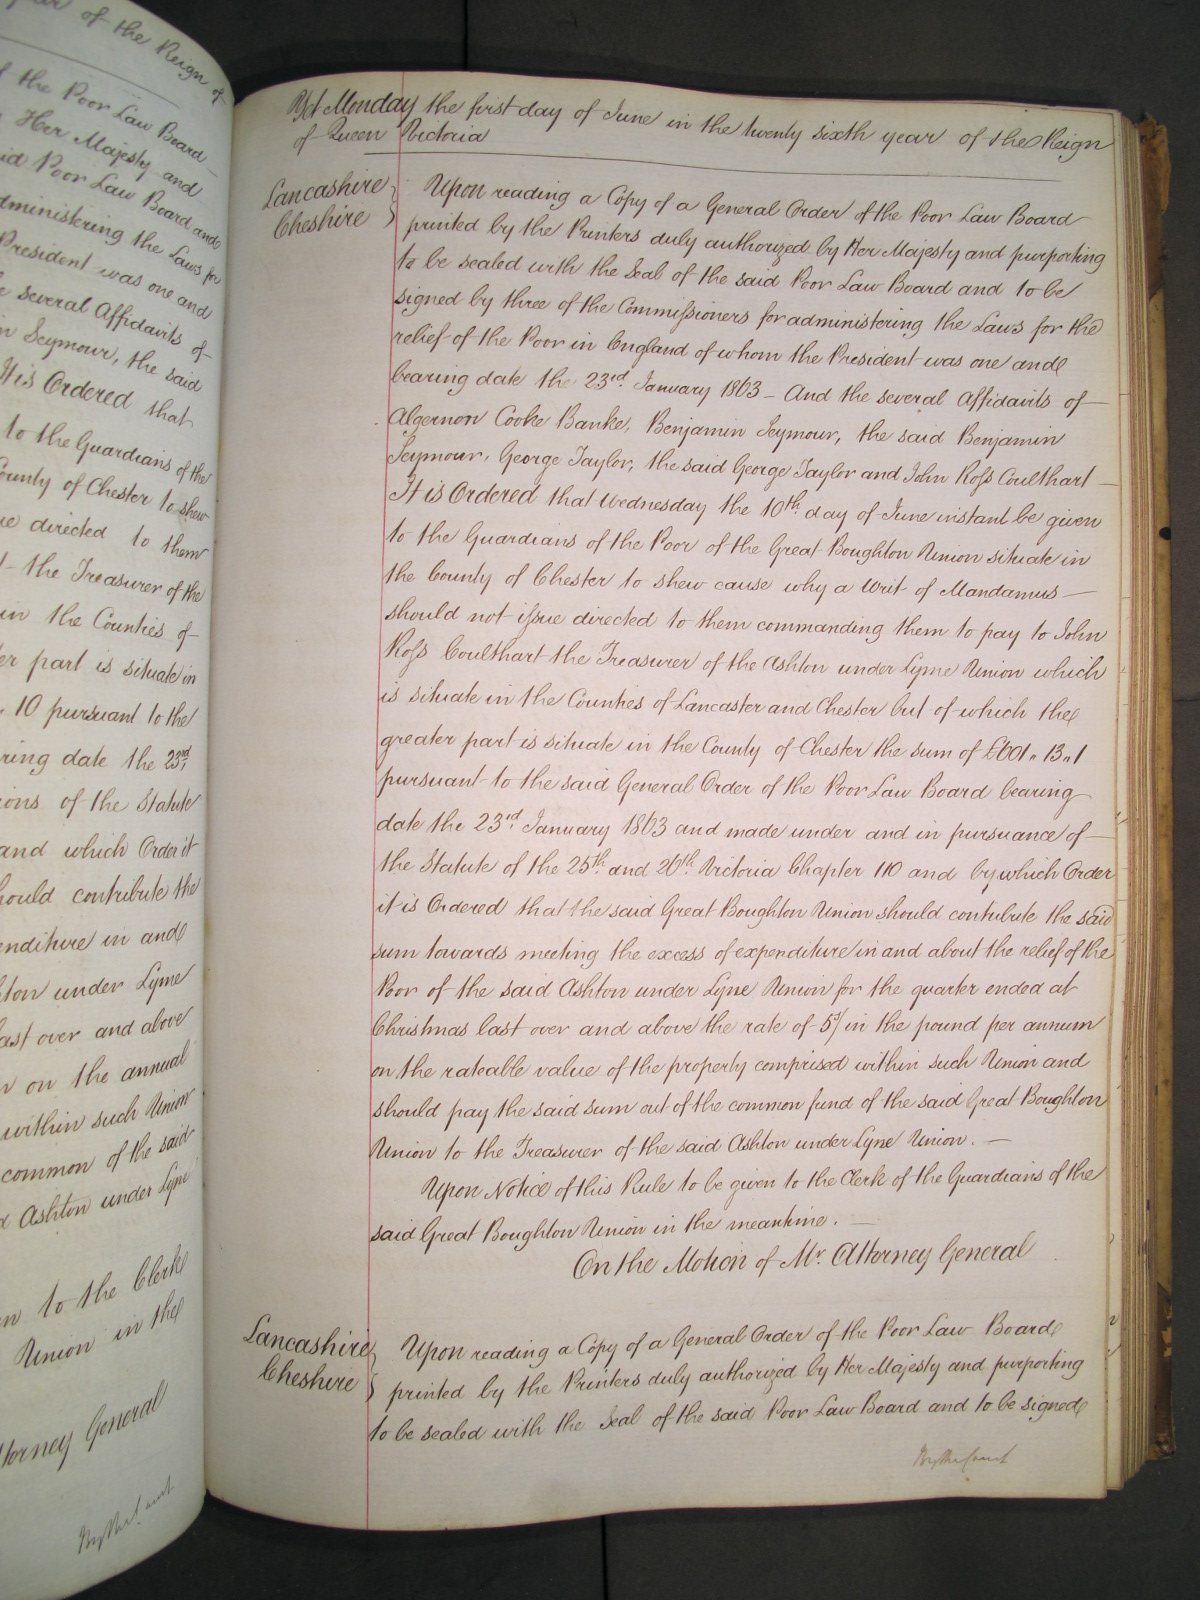 year of the Reign of
of the Poor Law Board
Her Majesty and
said Poor Law Board and
administering the Laws for
President was one and
several Affidavits of
Seymour, the said
It is Ordered that
to the Guardians of the
County of Chester to shew
directed to them
the Treasurer of the
in the Counties of
part is situate in
10 pursuant to the
date the 23rd
of the Statute
and which Order it
should contribute the
in and
under Lyme
last over and above
on the annual
within such Union
common of the said
Ashton under Lyne
to the Clerk
Union in the
Attorney General
By the Court
Yet Monday the first day of June in the twenty sixth year of the Reign
of Queen Victoria
Lancashire
Cheshire
Upon reading a Copy of a General Order of the Poor Law Board
printed by the Printers duly authorized by Her Majesty and purporting
to be sealed with the Seal of the said Poor Law Board and to be
signed by three of the Commissioners for administering the Laws for the
relief of the Poor in England of whom the President was one and
bearing date the 23rd January 1863 - And the several Affidavits of
Algernon Cooke Banke, Benjamin Seymour, the said Benjamin
Seymour, George Taylor, the said George Taylor and John Ross Coulthart
It is Ordered that Wednesday the 10th day of June instant be given
to the Guardians of the Poor of the Great Boughton Union situate in
the County of Chester to shew cause why a Writ of Mandamus
should not issue directed to them commanding them to pay to John
Ross Coulthart the Treasurer of the Ashton under Lyme Union which
is situate in the Counties of Lancaster and Chester but of which the
greater part is situate in the County of Chester the sum of £601,, 13,, 1
pursuant to the said General Order of the Poor Law Board bearing
date the 23rd January 1863 and made under and in pursuance of
the Statute of the 25th and 26th Victoria Chapter 110 and by which Order
it is Ordered that the said Great Boughton Union should contribute the said
sum towards meeting the excess of expenditure in and about the relief of the
Poor of the said Ashton under Lyne Union for the quarter ended at
Christmas last over and above the rate of 5d/ in the pound per annum
on the rateable value of the property comprised within such Union and
should pay the said sum out of the common fund of the said Great Boughton
Union to the Treasurer of the said Ashton under Lyne Union.
Upon Notice of this Rule to be given to the Clerk of the Guardians of the
said Great Boughton Union in the meantime.
On the Motion of Mr. Attorney General
Lancashire
Cheshire
Upon reading a Copy of a General Order of the Poor Law Board
printed by the Printers duly authorized by Her Majesty and purporting
to be sealed with the Seal of the said Poor Law Board and to be signed
By the Court